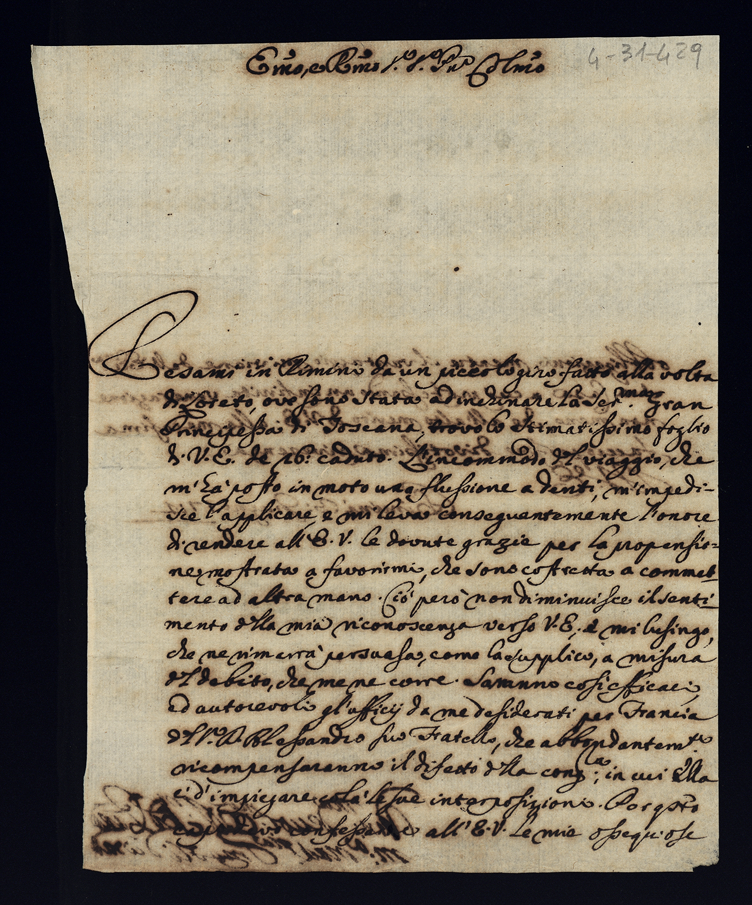 Emo, e Rmo Sr. Sr. Pne Colmo
4-31-429
Resami in Rimino da un piccolo giro fatto alla volta
di Loreto, ove sono stata ad inchinare la Ser.ma gran
Principessa di Toscana, trovo lo stimatissimo foglio
di V. E. de 16. caduto. L'incommodo del viaggio, che
m'hà posto in moto una flussione a denti, m'impedi-
sce l'applicare e mi leva conseguentemente l'onore
di rendere all'E. V. le dovute grazie per la propensio-
ne mostrata a favorirmi, che sono costretta a commet-
tere ad altra mano. Ciò però non diminuisce il senti-
mento della mia riconoscenza verso V. E., e mi lusingo,
che ne rimerrà persuasa, come la supplico, a misura
del debito, che me ne corre. Saranno così efficaci,
ed autorevoli gl'ufficij da me desiderati per Francia
del Sr. D. Alessandro suo Fratello, che abbondantemte.
ricompenseranno il difetto della in cui Ella
è d'impiegare colà le sue interposizioni. Por
confessare all'E. V. le mie ossequiose